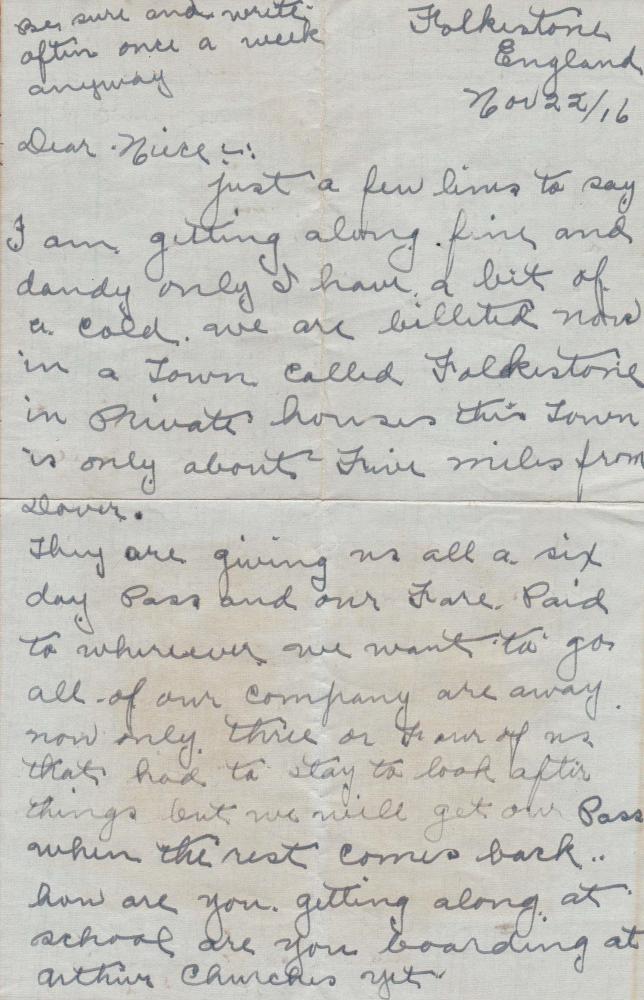 Be sure and write
often once a week
anyway
Folkestone
England
Nov 22/16
Dear Niece:-
just a few lines to say
I am getting along fine and
dandy only I have a bit of
a cold. we are billeted now
in a Town called Folkestone
in Private houses this Town
is only about Five miles from
Dover.
They are giving us all a six
day Pass and our Fare Paid
to wherever we want to go
all of our company are away
now only three or Four of us
that had to stay to look after
things but we will get our Pass
when the rest comes back..
how are you getting along at
school are you boarding at
Arthur Churches yet